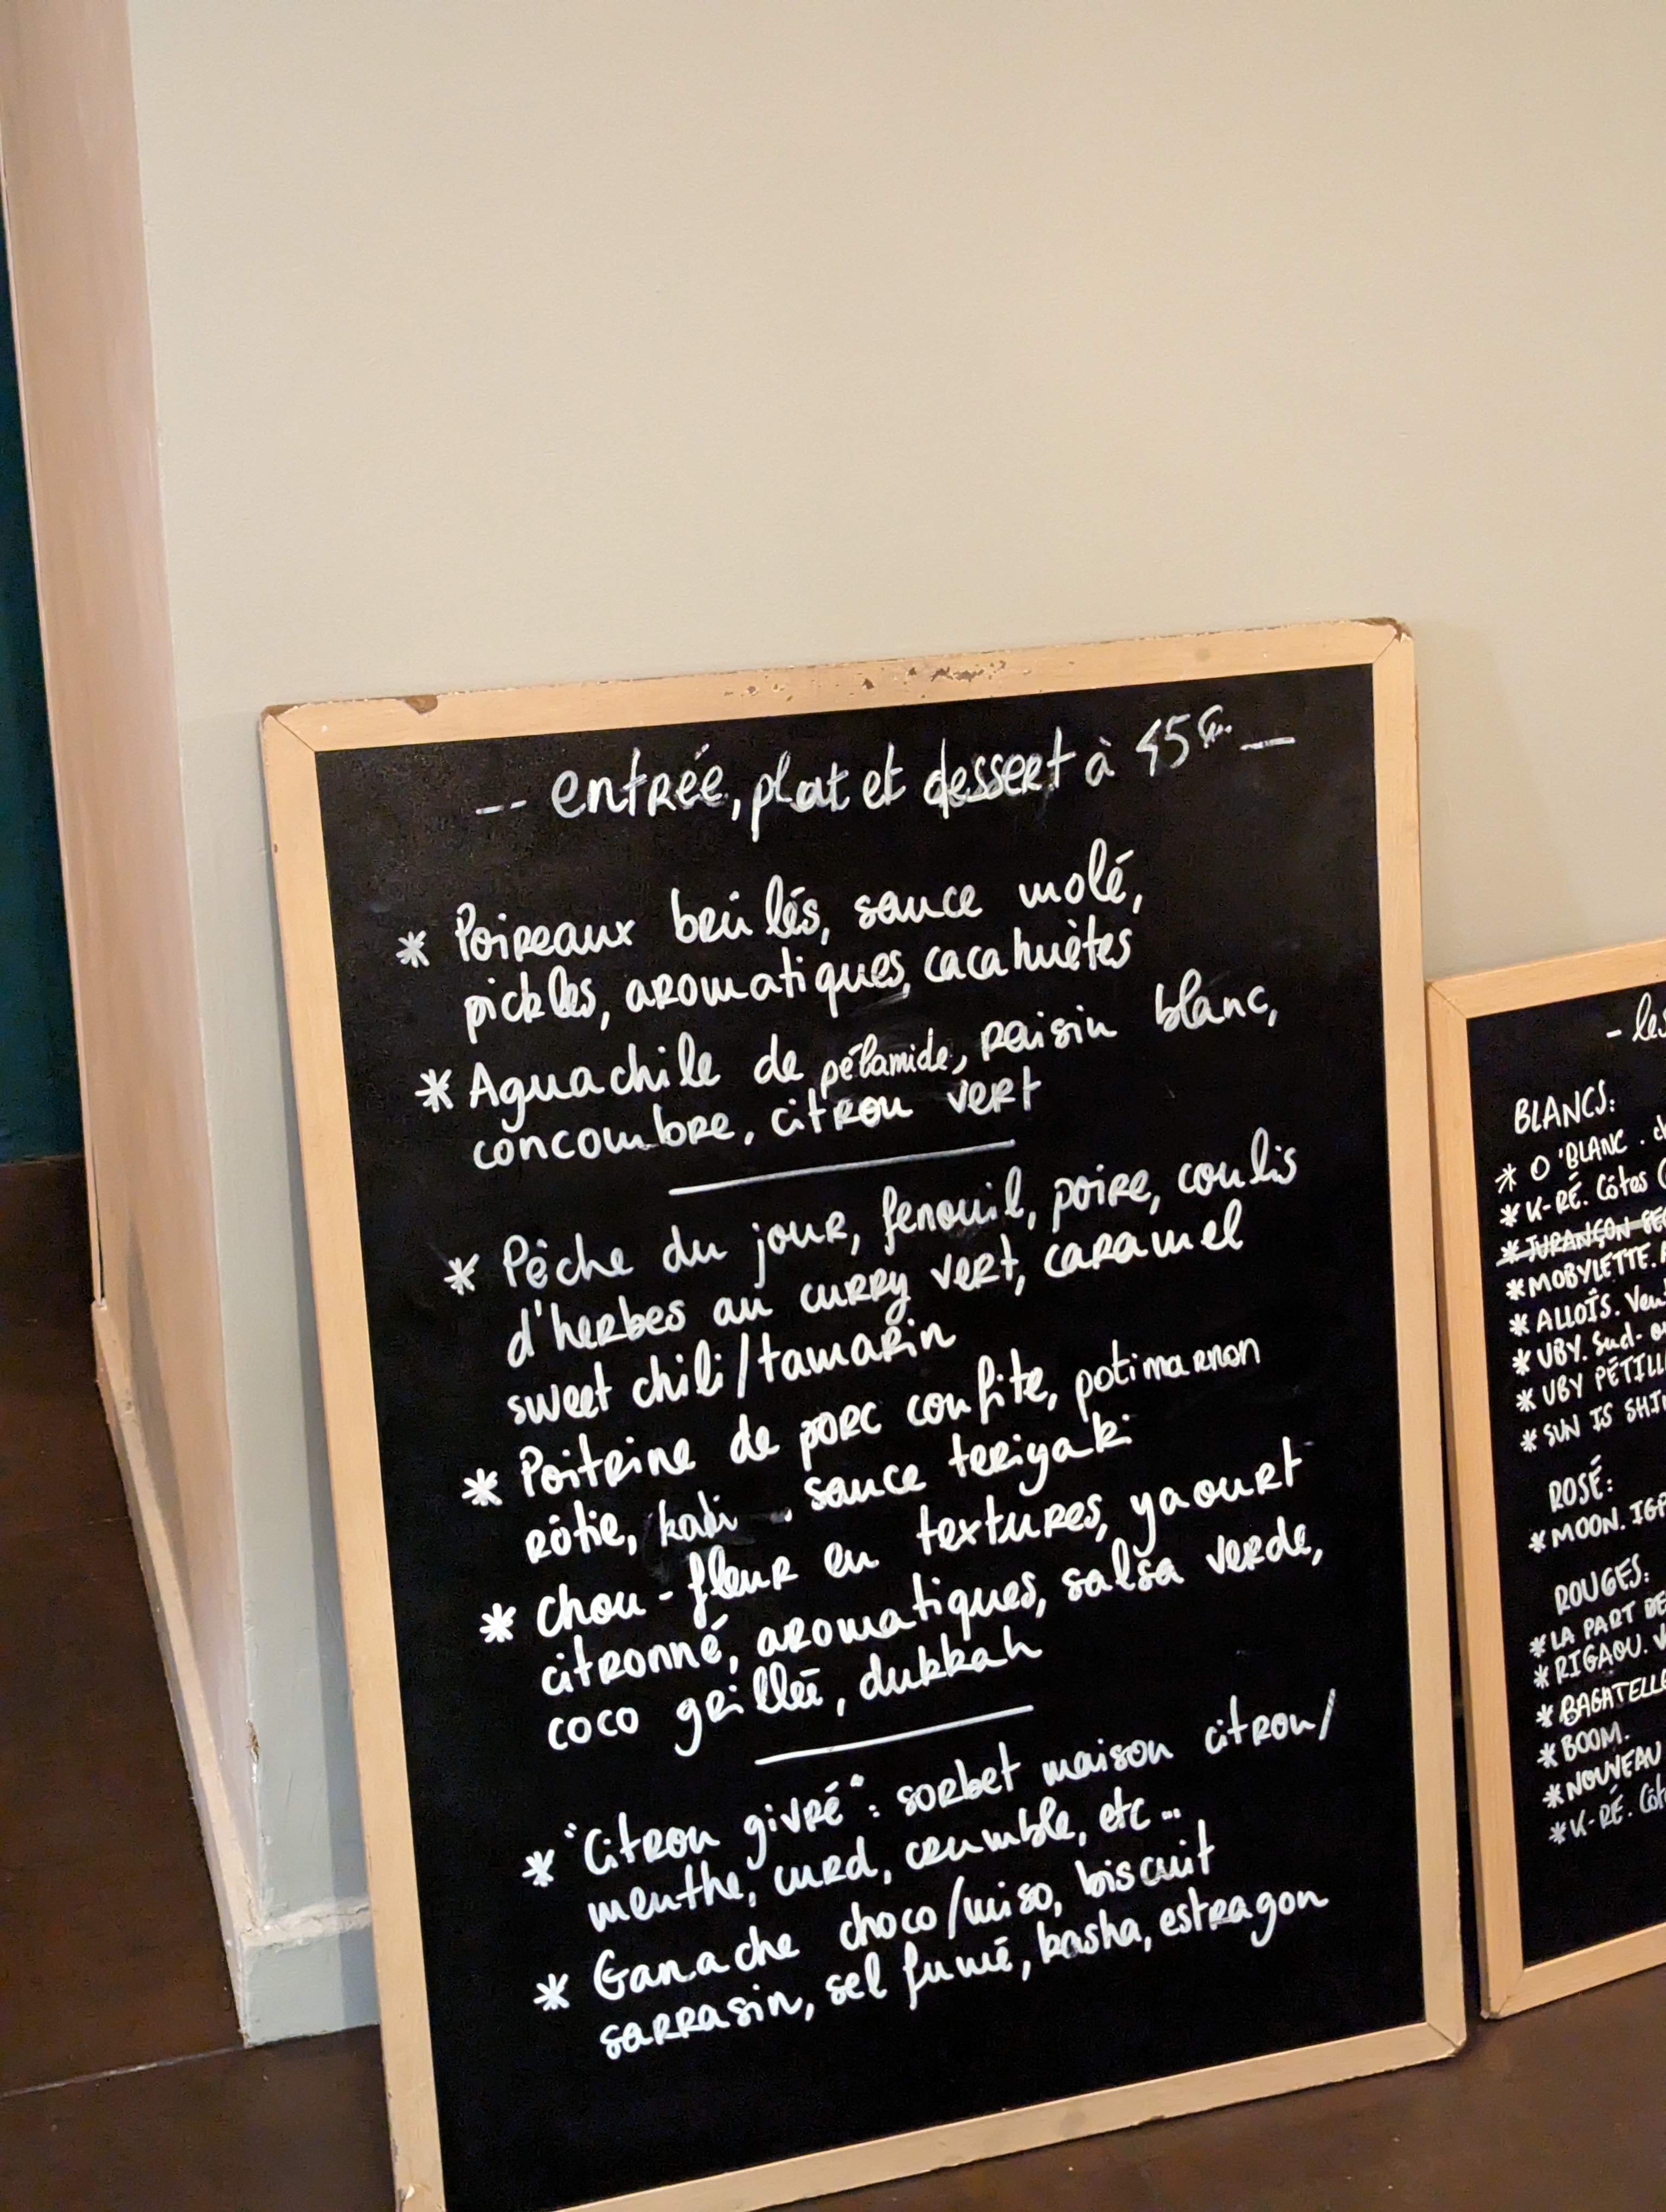 -- entrée, plat et dessert à 45€. —
* Poireaux brûlés, sauce molé,
pickles, aromatiques, cacahuètes
* Aguachile de pélamide, raisin blanc,
concombre, citron vert
* Pêche du jour, fenouil, poire, coulis
d'herbes au curry vert, caramel
sweet chili/tamarin
* Poitrine de porc confite, potimarron
rôtie, kaki . sauce teriyaki
* chou-fleur en textures, yaourt
citronné, aromatiques, salsa verde,
coco grillée, dukkah
* "Citron givré": sorbet maison citron/
menthe, curd, crumble, etc...
* Ganache choco/miso, biscuit
sarrasin, sel fumé, kasha, estragon
- les
BLANCS:
* O'BLANC .
* K-RÉ. Côtes
* JURANÇON SEC
* MOBYLETTE.
* ALLOÏS.
* UBY. Sud-
* UBY
* SUN IS
ROSÉ:
* MOON. IGP
ROUGES:
* LA PART
* RIGAOU.
* BAGATELLE
* BOOM.
* NOUVEAU
* K-RÉ.